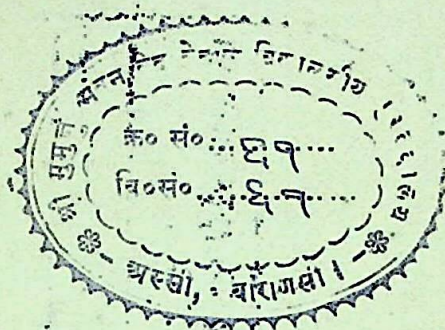 श्री मुमुक्षु भवन वेद वेदाङ्ग विद्यालय
क्र० सं०...६१...
वि०सं०...६१...
अस्सी, वाराणसी।